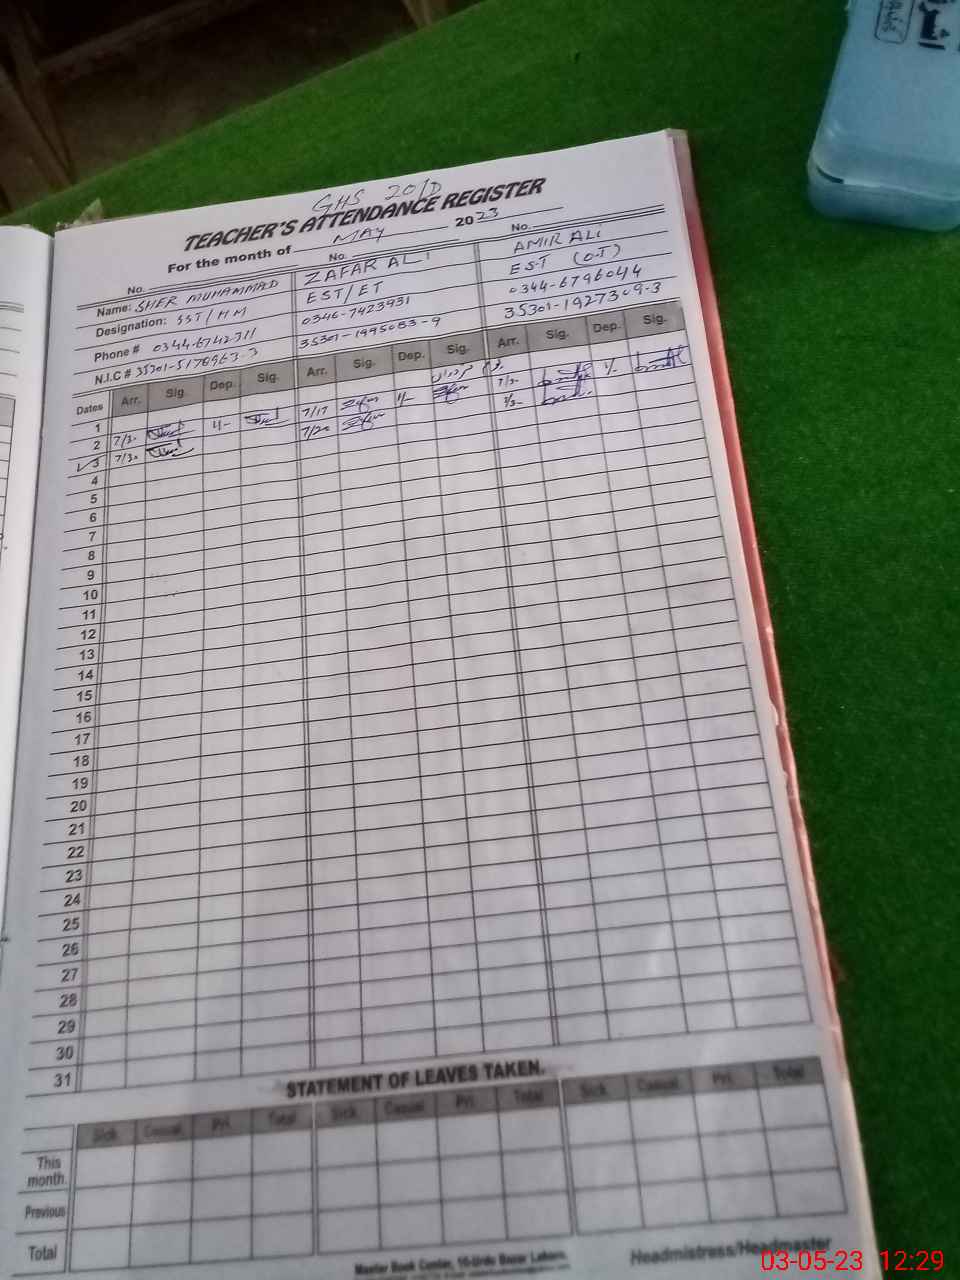 GHS 20/D
TEACHER'S ATTENDANCE REGISTER
For the month of MAY 2023
No. No. No.
Name: SHER MUHAMMAD ZAFAR ALI AMIR ALI
Designation: SST/HM EST/ET EST (O.T)
Phone # 0344-6742311 0346-7423931 0344-6796044
N.I.C # 35301-5178963-3 35301-1995083-9 35301-1927309-3
Dates Arr. Sig. Dep. Sig. Arr. Sig. Dep. Sig. Arr. Sig. Dep. Sig.
1
2 7/30 1/- 7/17 1/- 7/30 1/-
3 7/30 7/20
4
5
6
7
8
9
10
11
12
13
14
15
16
17
18
19
20
21
22
23
24
25
26
27
28
29
30
31
STATEMENT OF LEAVES TAKEN.
Sick Casual Pri. Total Sick Casual Pri. Total Sick Casual Pri. Total
This month.
Previous
Total
Master Book Center, 10-Urdu Bazar Lahore.
Headmistress/Headmaster
03-05-23 12:29